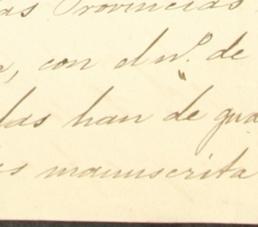 as Provincias
, con el nº. de
las han de gua
es manuscrita